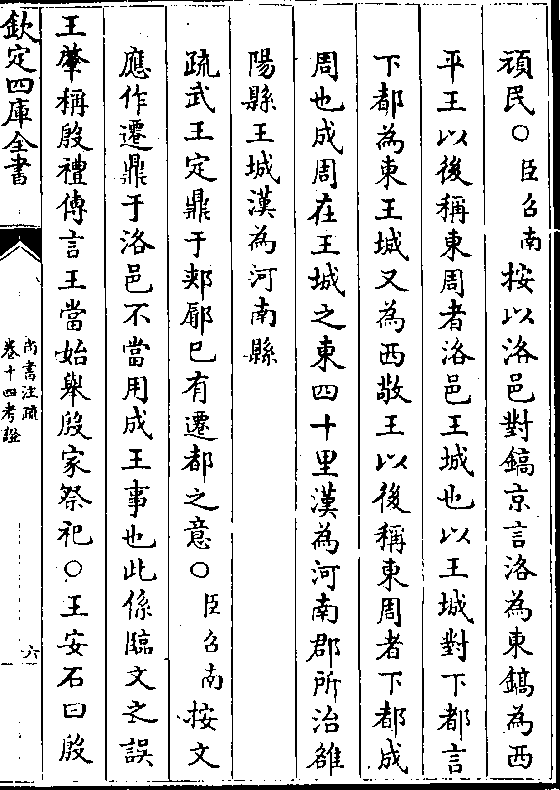 頑民○臣召南按以洛邑對鎬京言洛為東鎬為西
平王以後稱東周者洛邑王城也以王城對下都言
下都為東王城又為西敬王以後稱東周者下都成
周也成周在王城之東四十里漢為河南郡所治雒
陽縣王城漢為河南縣
疏武王定鼎于郟鄏已有遷都之意○臣召南按文
應作遷鼎于洛邑不當用成王事也此係臨文之誤
王肇稱殷禮傳言王當始舉殷家祭祀○王安石曰殷
欽定四庫全書
尚書注疏
卷十四考證
六